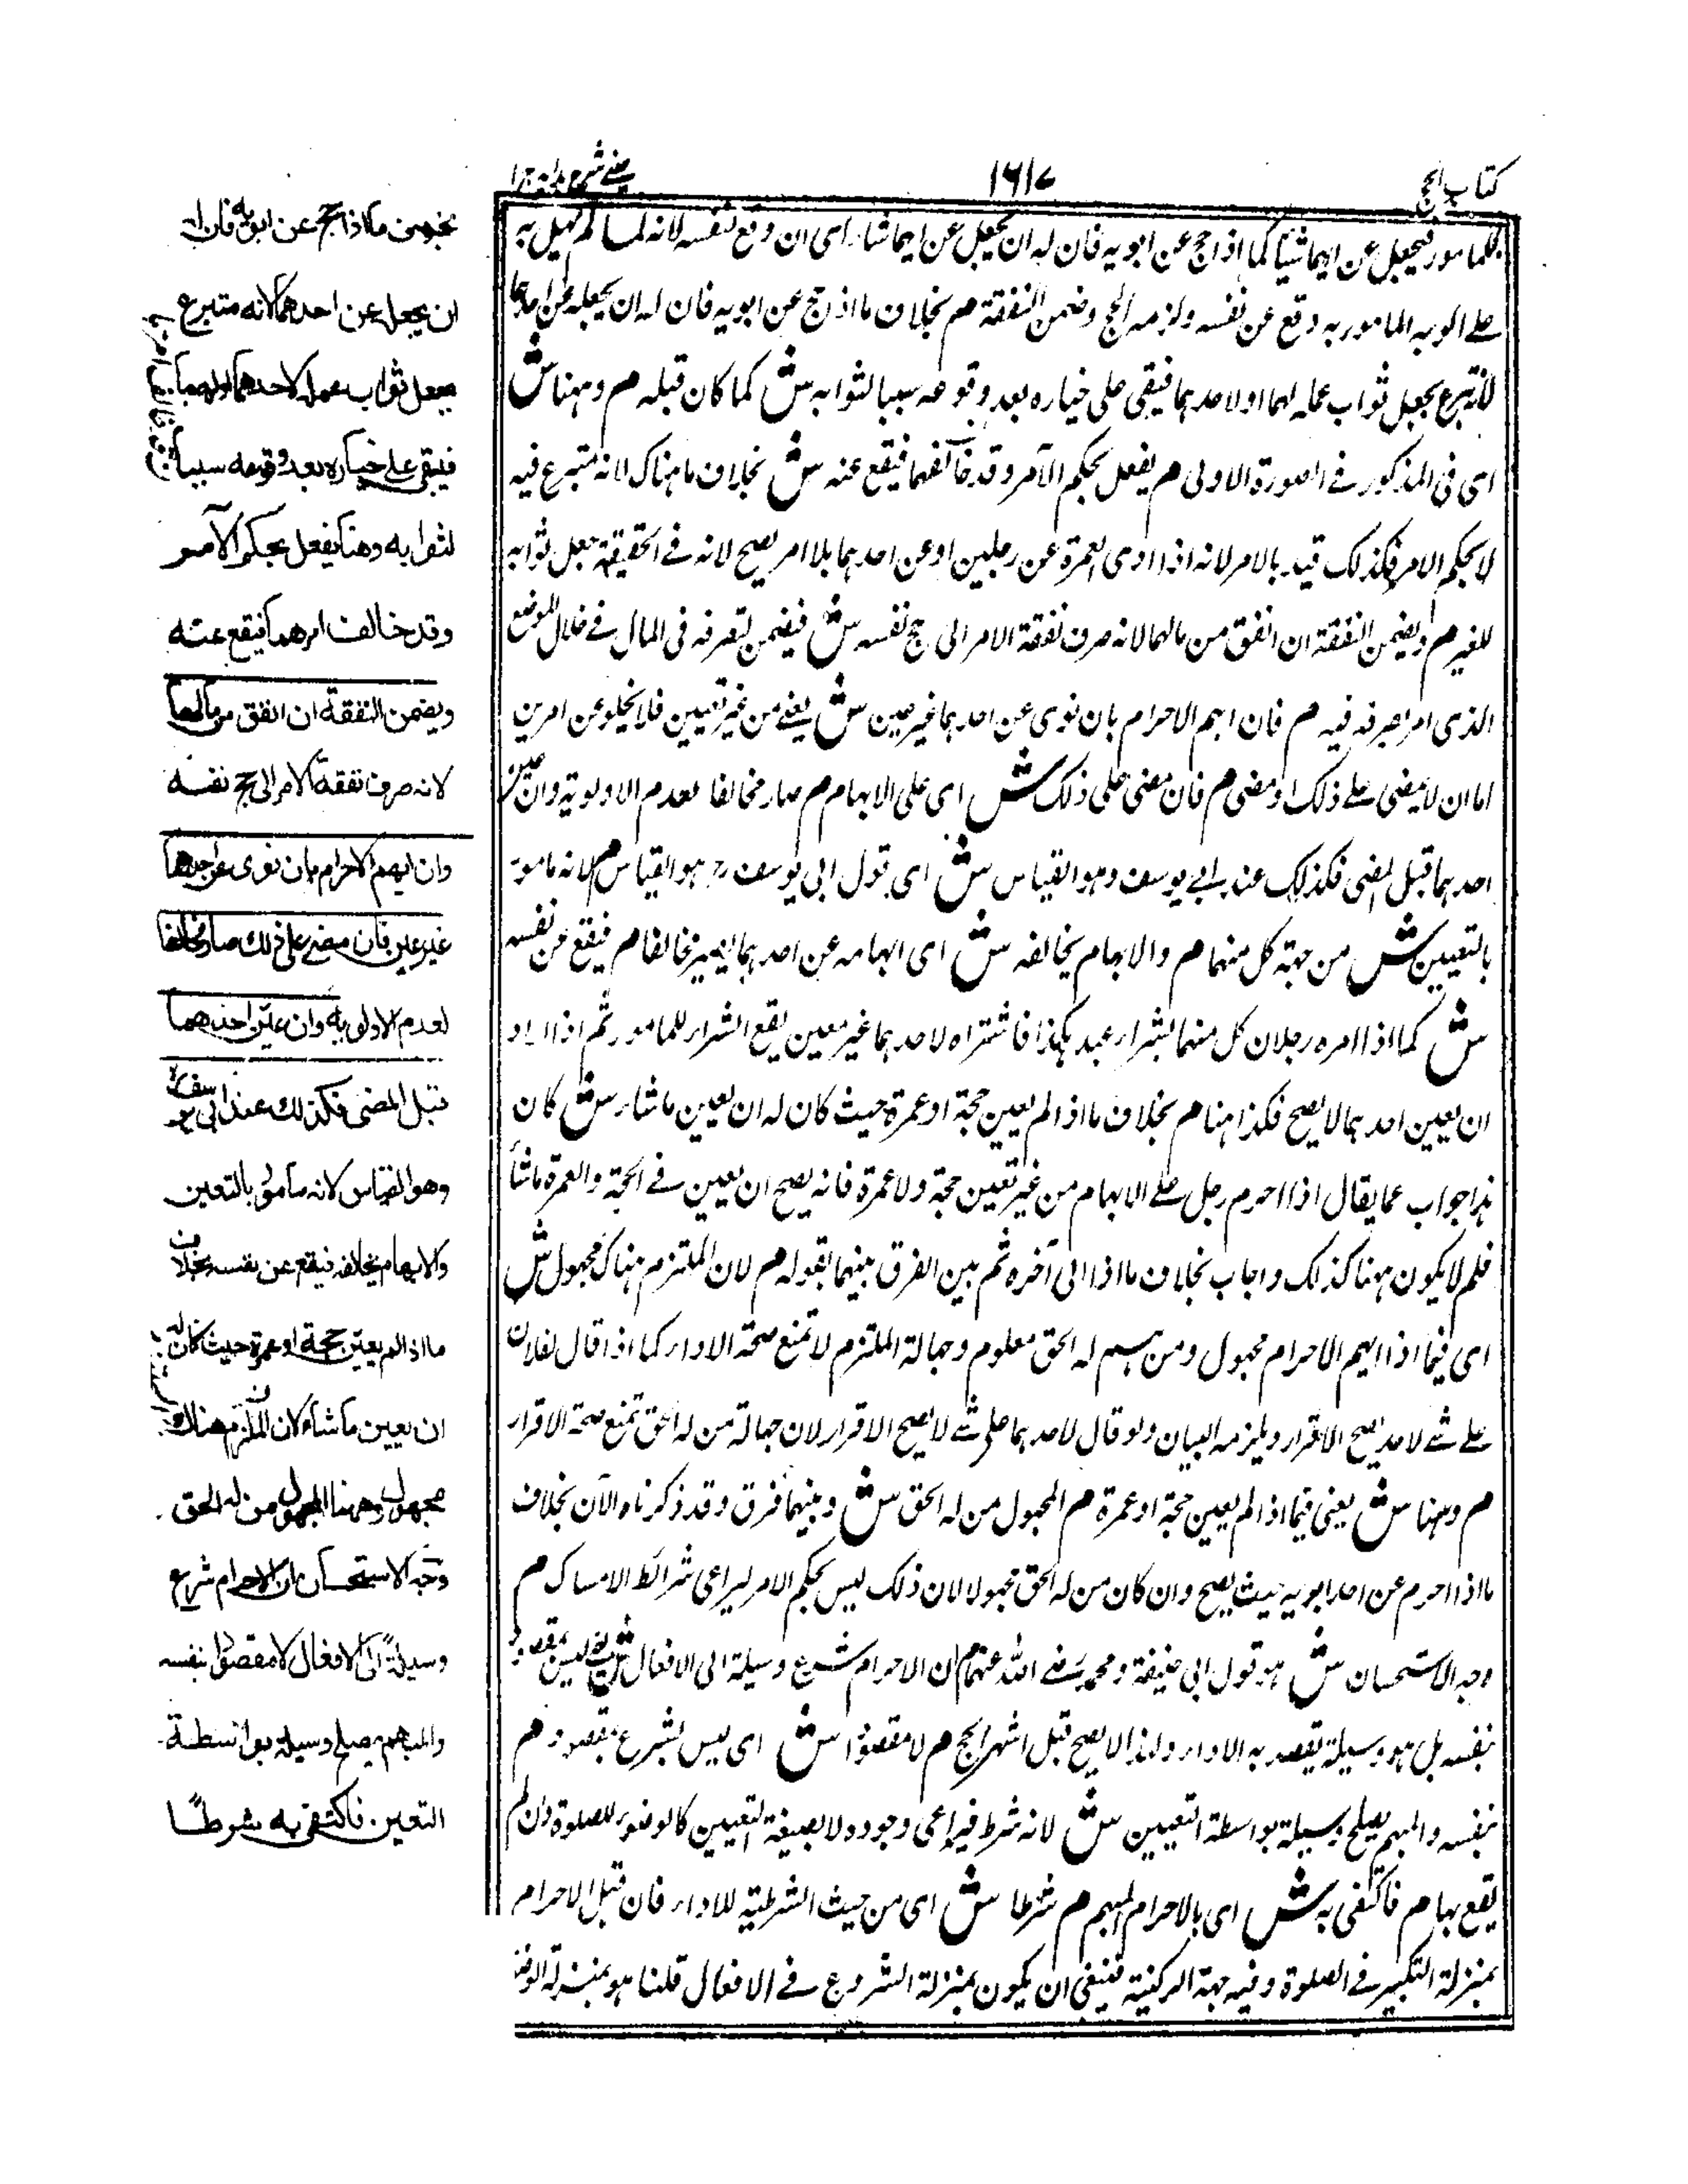 كتاب الحج
١٦١٧
عينى شرح هداية ج ١
للمامور فيجعل عن ايهما شيئا كما اذا حج عن ابويه فان له ان يجعل عن ايهما شاء اى ان وقع لنفسه لانه لما لم يهل به
على الوجه المامور به وقع عن نفسه ولزمه الحج وضمن النفقة م بخلاف ما اذا حج عن ابويه فان له ان يجعله عن احدهما
لانه تبرع بجعل ثواب عمله لهما او لاحدهما فيبقى على خياره بعد وقوعه سببا لثوابه ش كما كان قبله م وههنا ش
اى فى المذكور فى الصورة الاولى م يفعل بحكم الآمر وقد خالفهما فيقع عنه ش بخلاف ما هناك لانه متبرع فيه
لا بحكم الامر فكذلك قيد بالامر لانه اذا ادى العمرة عن رجلين او عن احدهما بلا امر يصح لانه فى الحقيقة جعل ثوابه
للغير م ويضمن النفقة ان انفق من مالهما لانه صرف نفقة الامر الى حج نفسه ش فيضمن لتصرفه فى المال فى خلاف الموضع
الذى امر بصرفه فيه م فان ابهم الاحرام بان نوى عن احدهما غير عين ش يعنى من غير تعيين فلا يخلو عن امرين
اما ان لا يمضى على ذلك او مضى م فان مضى على ذلك ش اى على الابهام م صار مخالفا لعدم الاولوية وان عين
احدهما قبل المضى فكذلك عند ابى يوسف وهو القياس ش اى قول ابى يوسف رح هو القياس م لانه مامور
بالتعيين ش من جهة كل منهما م والابهام يخالفه ش اى ابهامه عن احدهما يصير مخالفا م فيقع عن نفسه
ش كما اذا امره رجلان كل منهما بشراء عبد بكذا فاشتراه لاحدهما غير معين يقع الشراء للمامور ثم اذا اراد
ان يعين احدهما لا يصح فكذا هنا م بخلاف ما اذا لم يعين حجة او عمرة حيث كان له ان يعين ما شاء ش كان
هذا جواب عما يقال اذا احرم رجل على الابهام من غير تعيين حجة ولا عمرة فانه يصح ان يعين فى الحجة والعمرة ما شاء
فلم لا يكون ههنا كذلك واجاب بخلاف ما اذا الى آخره ثم بين الفرق بينهما بقوله م لان الملتزم هناك مجهول ش
اى فيما اذا ابهم الاحرام مجهول ومن له الحق معلوم وجهالة الملتزم لا تمنع صحة الاداء كما اذا قال لفلان
على شئ لاحد يصح الاقرار ويلزمه البيان ولو قال لاحدهما على شئ لا يصح الاقرار لان جهالة من له الحق تمنع صحة الاقرار
م وههنا ش يعنى فيما اذا لم يعين حجة او عمرة م المجهول من له الحق ش وبينهما فرق وقد ذكرناه الآن بخلاف
ما اذا احرم عن احد ابويه حيث يصح وان كان من له الحق مجهولا لان ذلك ليس بحكم الامر ليراعى شرائط الامساك م
وجه الاستحسان ش هو قول ابى حنيفة ومحمد رضى الله عنهما م ان الاحرام شرع وسيلة الى الافعال ش يعنى ليس بمقصود
بنفسه بل هو وسيلة يقصد به الاداء ولهذا لا يصح قبل اشهر الحج م لا مقصودا ش اى ليس بشرع بمقصود م
بنفسه والمبهم يصلح وسيلة بواسطة التعيين ش لانه شرط فيراعى وجوده لا بصيغة التعيين كالوضوء للصلوة وان لم
يقع بها م فاكتفى به ش اى بالاحرام المبهم م شرطا ش اى من حيث الشرطية للاداء فان قبل الاحرام
بمنزلة التكبير فى الصلوة وفيه جهة الركنية فينبغى ان يكون بمنزلة الشروع فى الافعال قلنا هو بمنزلة الوضوء
بخلاف ما اذا حج عن ابويه فان له
ان يجعل عن احدهما لانه متبرع
بجعل ثواب عمله لاحدهما او لهما
فيبقى على خياره بعد وقوعه سببا
لثوابه وهنا يفعل بحكم الآمر
وقد خالف امرهما فيقع عنه
ويضمن النفقة ان انفق من مالهما
لانه صرف نفقة الامر الى حج نفسه
وان ابهم الاحرام بان نوى عن احدهما
غير عين فان مضى على ذلك صار مخالفا
لعدم الاولوية وان عين احدهما
قبل المضى فكذلك عند ابى يوسف
وهو القياس لانه مامور بالتعين
والابهام يخالفه فيقع عن نفسه بخلاف
ما اذا لم يعين حجة او عمرة حيث كان له
ان يعين ما شاء لان الملتزم هناك
مجهول وههنا المجهول من له الحق
وجه الاستحسان ان الاحرام شرع
وسيلة الى الافعال لا مقصودا بنفسه
والمبهم يصلح وسيلة بواسطة
التعين فاكتفى به شرطا